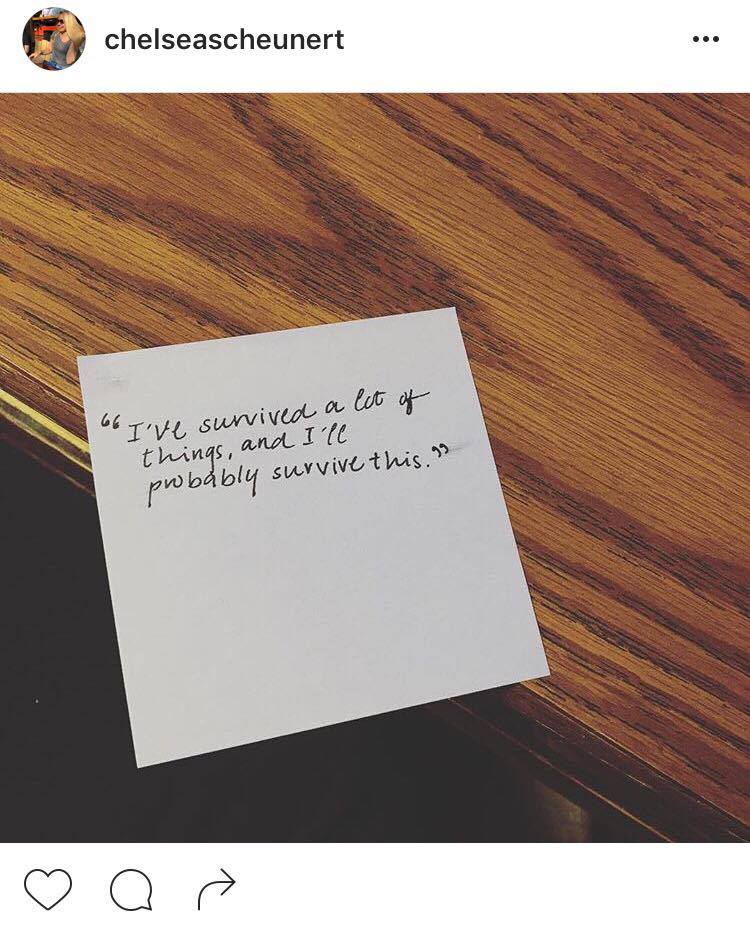 chelseascheunert
“I've survived a lot of
things, and I'll
probably survive this.”